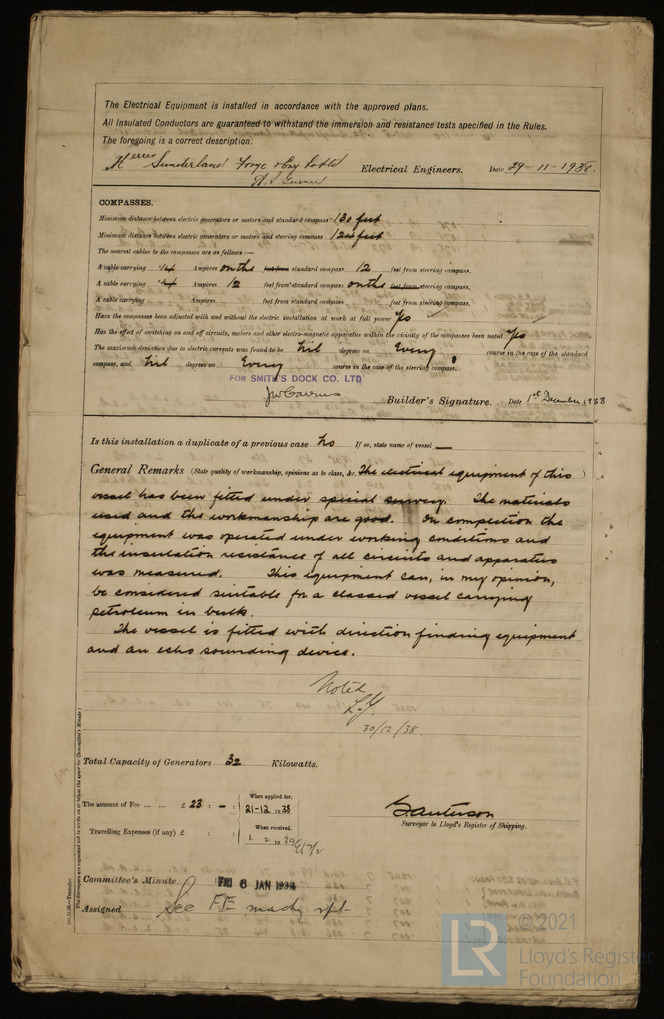 The Electrical Equipment is installed in accordance with the approved plans.
All Insulated Conductors are guaranteed to withstand the immersion and resistance tests specified in the Rules.
The foregoing is a correct description.
Messrs Sunderland Forge & Eng Co Ltd
Electrical Engineers. Date 29-11-1938.
COMPASSES.
Minimum distance between electric generators or motors and standard compass 130 feet
Minimum distance between electric generators or motors and steering compass 120 feet
The nearest cables to the compasses are as follows:—
A cable carrying .14 Ampères on the feet from standard compass 12 feet from steering compass.
A cable carrying .14 Ampères 12 feet from standard compass on the feet from steering compass.
A cable carrying Ampères feet from standard compass feet from steering compass.
Have the compasses been adjusted with and without the electric installation at work at full power Yes
Has the effect of switching on and off circuits, motors and other electro-magnetic apparatus within the vicinity of the compasses been noted Yes
The maximum deviation due to electric currents was found to be Nil degrees on Every course in the case of the standard
compass, and Nil degrees on Every course in the case of the steering compass.
FOR SMITH'S DOCK CO. LTD
Builder's Signature. Date 1st December 1938
Is this installation a duplicate of a previous case No If so, state name of vessel —
General Remarks (State quality of workmanship, opinions as to class, &c. The electrical equipment of this )
vessel has been fitted under special survey. The materials
used and the workmanship are good. On completion the
equipment was operated under working conditions and
the insulation resistance of all circuits and apparatus
was measured. This equipment can, in my opinion,
be considered suitable for a classed vessel carrying
petroleum in bulk.
The vessel is fitted with direction finding equipment
and an echo sounding device.
Noted
30/12/38.
Total Capacity of Generators 32 Kilowatts.
The amount of Fee ... ... £ 23 : - :
When applied for, 21-12 1938
Travelling Expenses (if any) £ : :
When received, 1. 2 1939
Surveyor to Lloyd's Register of Shipping.
Committee's Minute FRI 6 JAN 1939
Assigned See F.E. machy rpt.
The Surveyors are requested not to write on or below the space for Committee's Minute.
© 2021
LR
Lloyd's Register
Foundation